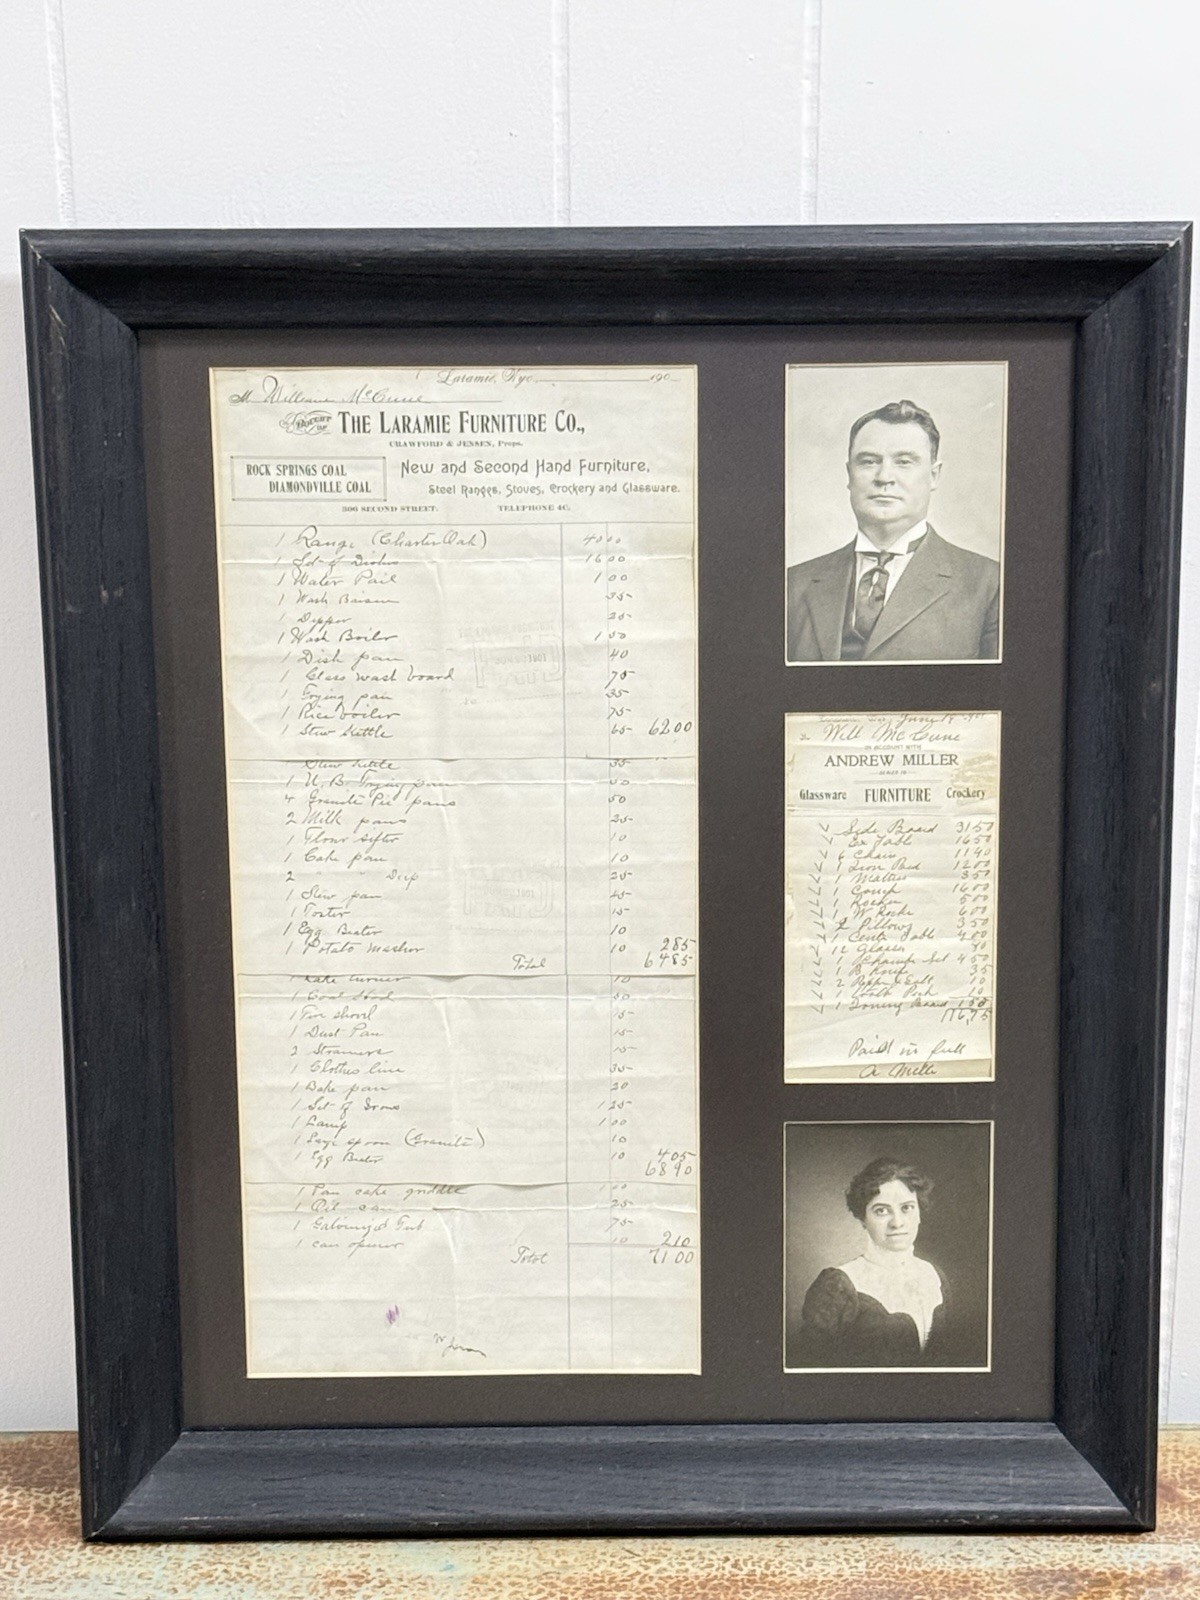 Laramie, Wyo. 190
M William McCune
BOUGHT OF THE LARAMIE FURNITURE CO.,
CRAWFORD & JENSEN, Props.
ROCK SPRINGS COAL
DIAMONDVILLE COAL
New and Second Hand Furniture,
Steel Ranges, Stoves, Crockery and Glassware.
306 SECOND STREET. TELEPHONE 4C.
1 Range (Charter Oak) 40 00
1 Set of Dishes 16 00
1 Water Pail 1 00
1 Wash Baisin 35
1 Dipper 25
1 Wash Boiler 1 50
1 Dish pan 40
1 Glass wash board 75
1 Frying pan 35
1 Rice boiler 75
1 Stew kettle 65 62 00
Stew kettle 35
1 N. B. Frying pan 50
4 Granite Pie pans 50
2 Milk pans 25
1 Flour sifter 10
1 Cake pan 10
2 " " Deep 25
1 Stew pan 45
1 Toster 15
1 Egg Beater 10
1 Potato Masher 10 2 85
Total 64 85
1 Cake turner 10
1 Coal Hod 50
1 Fire shovel 15
1 Dust Pan 15
2 Strainers 15
1 Clothes line 35
1 Bake pan 20
1 Set of Irons 1 25
1 Lamp 1 00
1 Large spoon (Granite) 10
1 Egg Beater 10 4 05
68 90
1 Pan cake griddle 1 00
1 Oil can 25
1 Galvinized Tub 75
1 can opener 10 2 10
Total 71 00
June 19
Will McCune
IN ACCOUNT WITH
ANDREW MILLER
DEALER IN
Glassware FURNITURE Crockery
Side Board 31 50
Ex Table 16 50
6 Chairs 11 40
1 Iron Bed 12 00
1 Mattress 3 50
1 Couch 16 00
1 Rocker 5 00
1 W Rocker 6 00
2 Pillows 3 50
1 Center Table 4 00
12 Glasses 80
1 Chamber Set 4 50
1 B Knife 35
2 Pepper & Salt 10
1 Tooth Pick 10
1 Ironing Board 1 50
116,75
Paid in full
A Miller